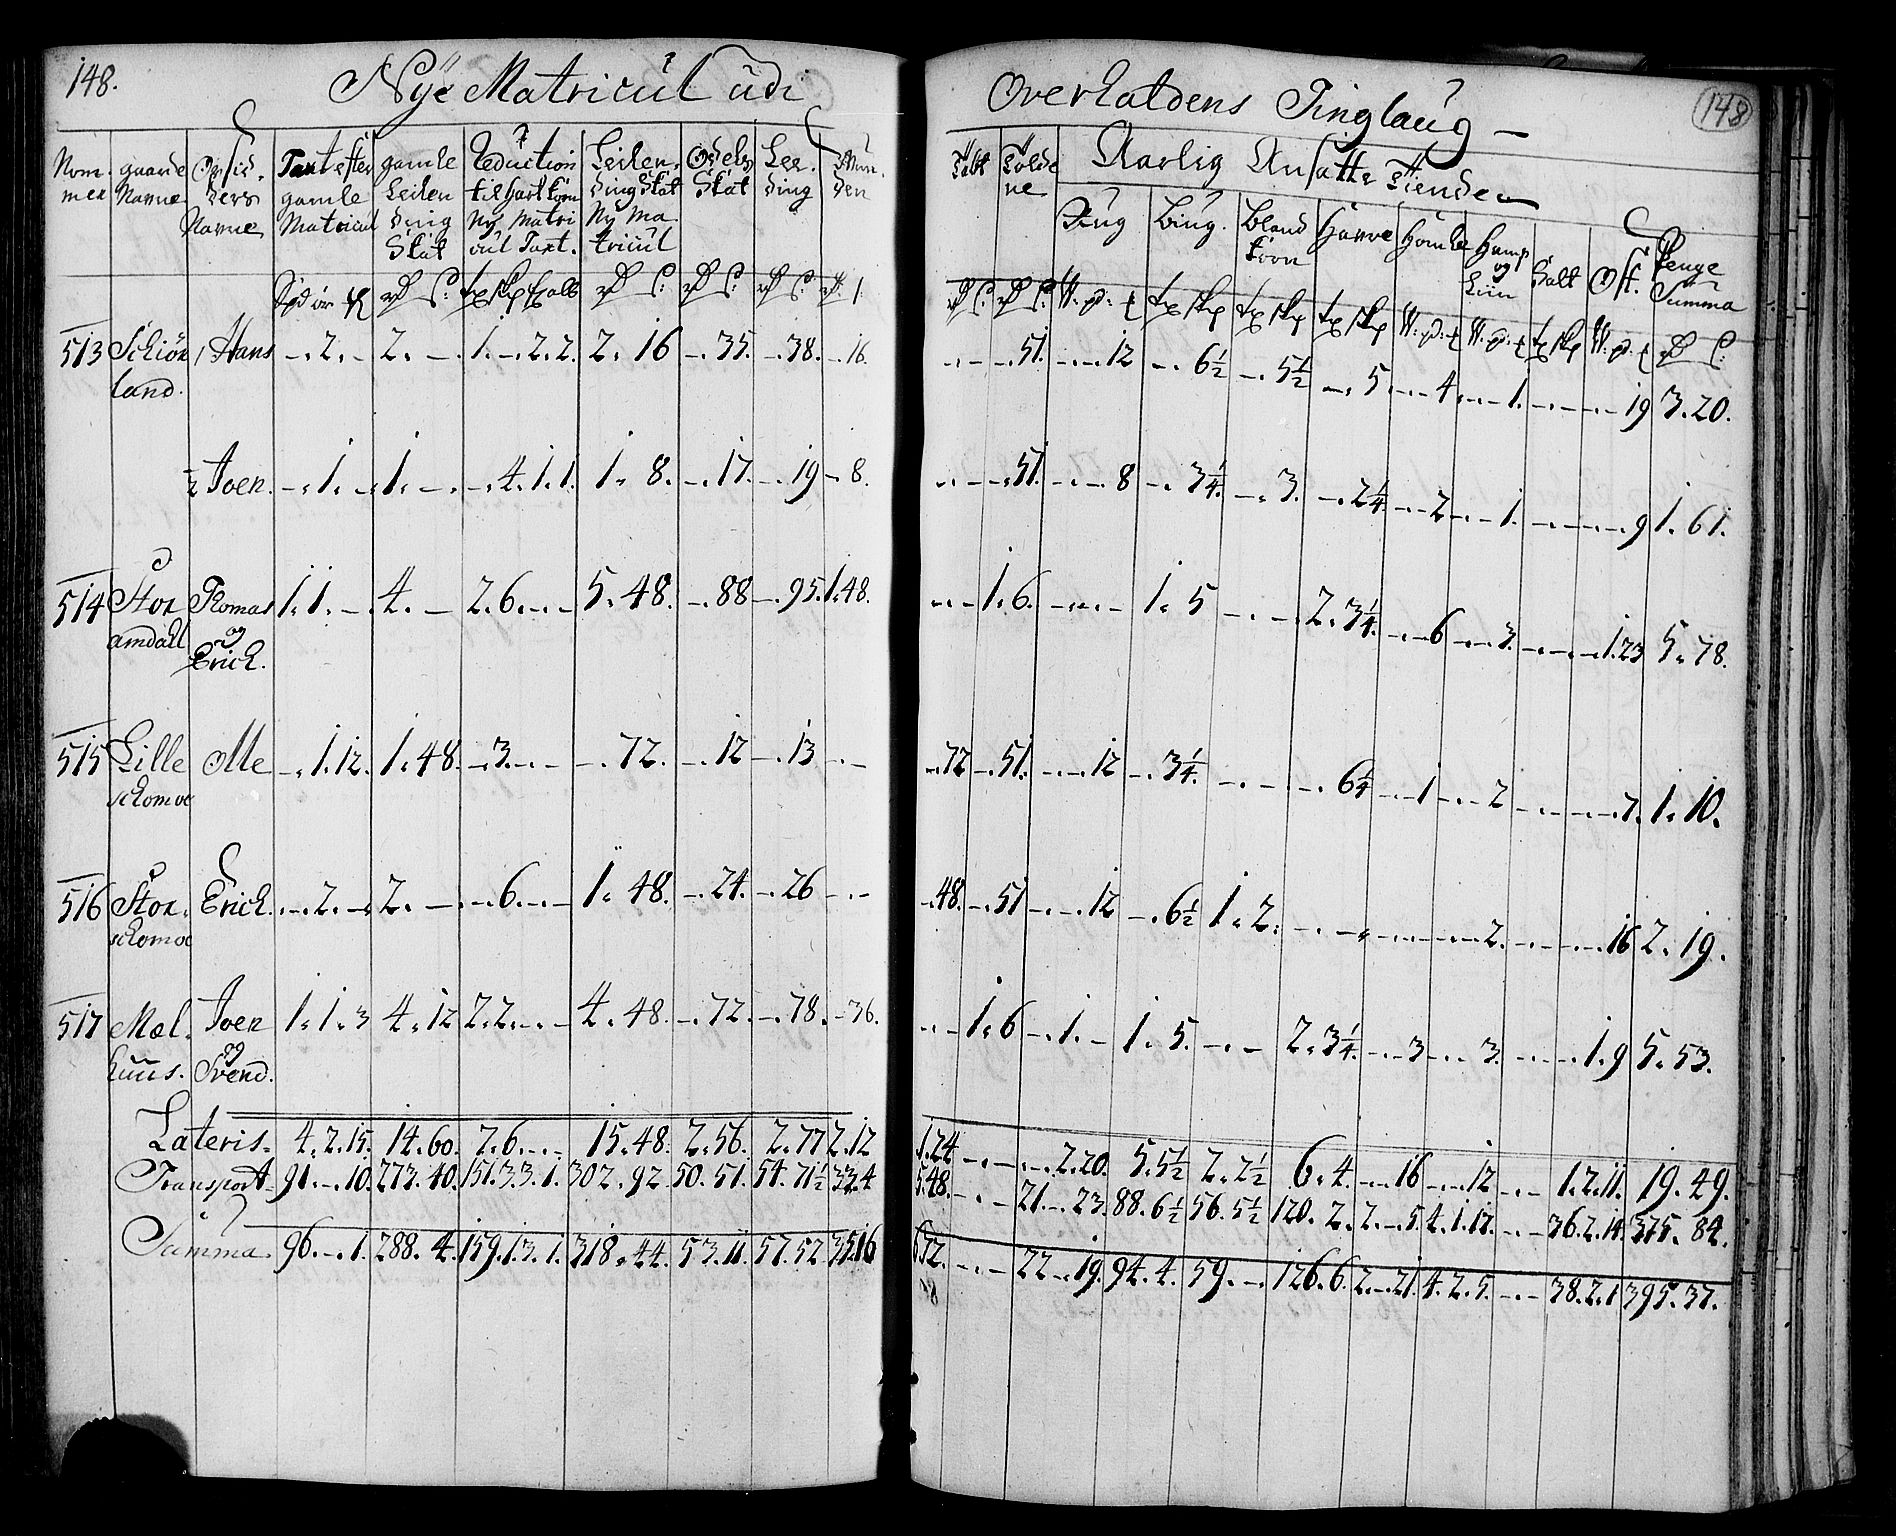 148.
Nÿe Matricul udi
Overhaldens Tinglaug –
148
Nom- mer | gaarde Navne | Opsid- ders Navne | Taxt efter gamle Matricul | gamle Leilen ding Skat | Reduction til hart korn Nÿ Matri cul Taxt. | Leilen- ding Skat Nÿ Ma- tricul | Odels Skat | Lee- ding
Tolde ne | Aarlig Ansatte Tiende
Biug. | Bland korn | Havre | Homle | Hamp og Liin | Salt | Ost. | Penge Summa
513 Schiön land. | 1 Hans | -. 2. - | 2. - | 1. -. 2. 2. | 2. 16 | -. 35. | -. 38. | -. 16.
- - | -. 51. | -. -. 12 | -. 6½ | -. 5½ | -. 5 | -. -. 4 | -. -. 1. | - - | -. -. 19 | 3. 20.
2 Joen. | -. 1. - | 1. -. | -. 4. 1. 1. | 1. 8. | -. 17. | -. 19 | -. 8.
- - | -. 51. | -. -. 8 | -. 3¼. | -. 3. | -. 2¼ | -. -. 2 | -. -. 1. | - - | -. -. 9 | 1. 61.
514 Stor amdahl | Thomas og Erich. | 1. 1. - | 4. - | 2. 6. -. - | 5. 48. | -. 88 | -. 95. | 1. 48.
- - | 1. 6. | -. -. - | 1. 5 | -. - | 2. 3¼. | -. -. 6 | -. -. 3. | - - | -. 1. 23 | 5. 78.
515 Lille schomoe | Olle | -. 1. 12. | 1. 48. | -. 3. -. - | -. 72. | -. 12 | -. 13 | -. -
-. 72 | -. 51. | -. -. 12 | -. 3¼. | -. -. | -. 6¼ | -. -. 1 | -. -. 2 | - - | -. -. 7. | 1. 10.
516 Stor. schomoe | Erich. | -. 2. - | 2. - | -. 6. -. - | 1. 48. | -. 24. | -. 26 | -. -
-. 48. | -. 51 | -. -. 12 | -. 6½ | 1. 2. | -. - | -. -. - | -. -. 2. | - - | -. -. 16 | 2. 19.
517 Mæl- huus. | Joen og Svend. | 1. 1. 3 | 4. 12 | 2. 2. -. - | 4. 48. | -. 72. | -. 78. | -. 36.
- - | 1. 6 | -. 1. - | 1. 5. | -. - | 2. 3¼. | -. -. 3 | -. -. 3. | - - | -. 1. 9 | 5. 53.
Lateris. | 4. 2. 15. | 14. 60. | 7. 6. -. - | 15. 48. | 2. 56. | 2. 77 | 2. 12
1. 24 | -. - | -. 2. 20. | 5. 5½ | 2. 2½ | 6. 4. | -. -. 16 | -. -. 12 | - - | 1. 2. 11. | 19. 49.
Transport. | 91. -. 10. | 273. 40. | 151. 3. 3. 1. | 302. 92. | 50. 51. | 54. 71½ | 33. 4
5. 48. | -. - | 21. -. 23. | 88. 6½ | 56. 5½ | 120. 2. | 2. -. 5. | 4. 1. 17. | - - | 36. 2. 14. | 375. 84.
Summa. | 96. -. 1. | 288. 4. | 159. 1. 3. 1. | 318. 44. | 53. 11. | 57. 52 | 35. 16
6. 72. | -. - | 22. -. 19. | 94. 4. | 59. -. | 126. 6. | 2. -. 21. | 4. 2. 5. | - - | 38. 2. 1 | 395. 37.